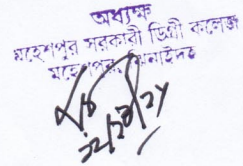 অধ্যক্ষ
মহেশপুর সরকারী ডিগ্রী কলেজ
মহেশপুর, ঝিনাইদহ